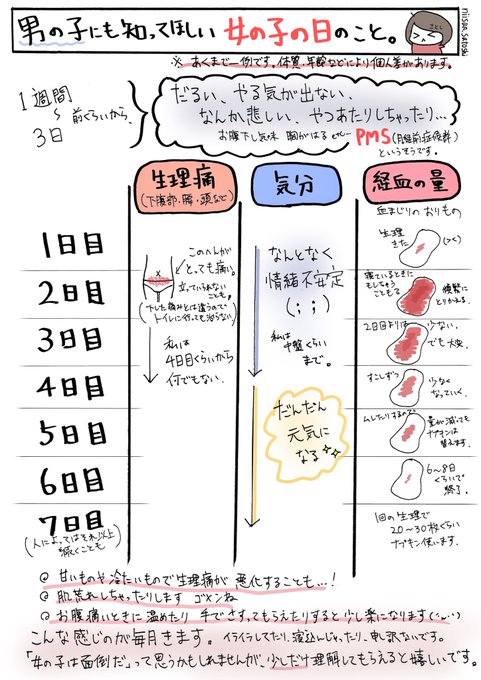 男の子にも知ってほしい 女の子の日のこと。
さとし
niisan_satoshi
※あくまで一例です。体質、年齢などにより個人差があります。
1週間
〜
3日
前くらいから、
だるい、やる気が出ない、
なんか悲しい、やつあたりしちゃったり…
お腹下し気味 胸がはる etc…
PMS(月経前症候群)
というそうです。
生理痛
(下腹部・腰・頭など)
気分
経血の量
1日目
2日目
3日目
4日目
5日目
6日目
7日目
(人によってはそれ以上
続くことも)
このへんが
とっても痛い。
立っていられない
ことも。
(下した痛みとは違うので
トイレに行っても治らない)
私は
4日目くらいから
何でもない。
なんとなく
情緒不安定
(; ;)
私は
中盤くらい
まで。
だんだん
元気に
なる
血まじりのおりもの
生理
きた
寝ているときに
もしちゃう
ことも
頻繁に
とりかえる。
2日目よりは少ない、
でも大変。
すこしずつ
少なく
なっていく。
ムレたりするので
量が減っても
ナプキンは
替えます。
6〜8日
くらいで
終了。
1回の生理で
20〜30枚くらい
ナプキン使います。
◎ 甘いものや冷たいもので生理痛が悪化することも…!
◎ 肌荒れしちゃったりします ゴメンね
◎ お腹痛いときに温めたり 手でさすってもらえたりすると少し楽になります(´・ω・`)
こんな感じのが毎月きます。 イライラしてたり、寝込んじゃったり、申し訳ないです。
「女の子は面倒だ」って思うかもしれませんが、少しだけ理解してもらえると嬉しいです。